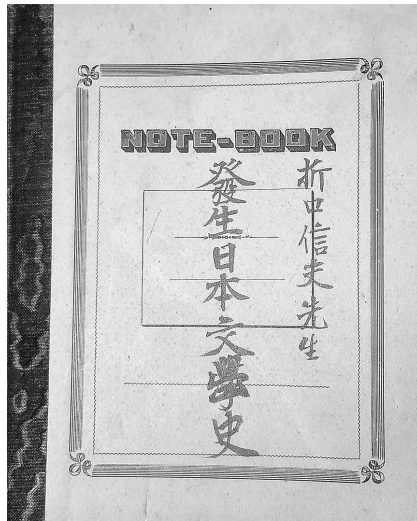 NOTE-BOOK
折口信夫先生
發生日本文學史